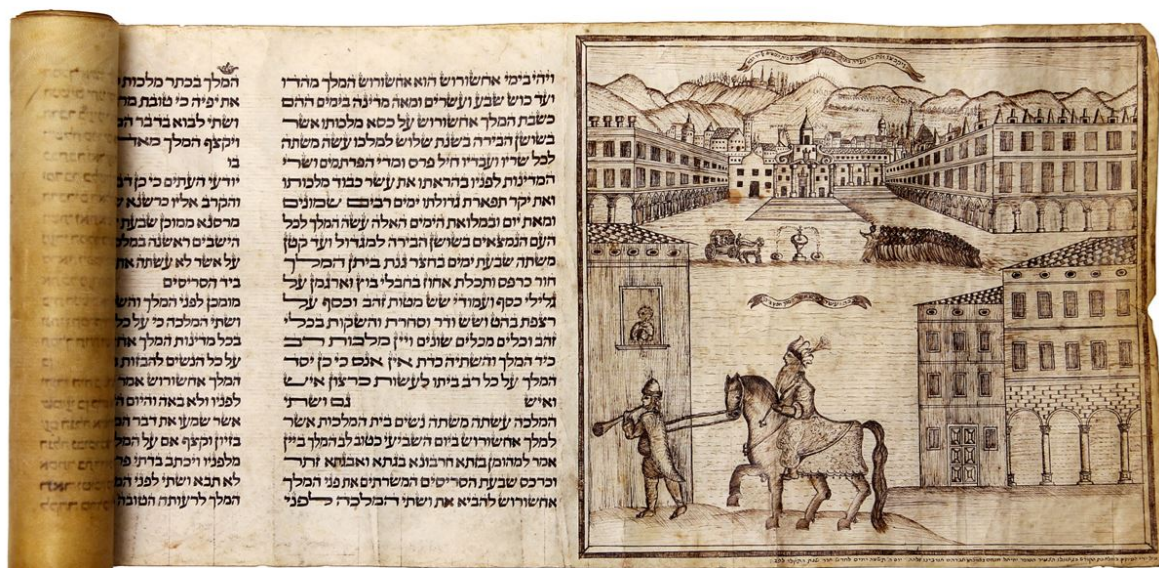 ויהי בימי אחשורוש הוא אחשורוש המלך מהדו
ועד כוש שבע ועשרים ומאה מדינה בימים ההם
כשבת המלך אחשורוש על כסא מלכותו אשר
בשושן הבירה בשנת שלוש למלכו עשה משתה
לכל שריו ועבדיו חיל פרס ומדי הפרתמים ושרי
המדינות לפניו בהראתו את עשר כבוד מלכותו
ואת יקר תפארת גדולתו ימים רבים שמונים
ומאת יום ובמלואת הימים האלה עשה המלך לכל
העם הנמצאים בשושן הבירה למגדול ועד קטן
משתה שבעת ימים בחצר גנת ביתן המלך
חור כרפס ותכלת אחוז בחבלי בוץ וארגמן על
גלילי כסף ועמודי שש מטות זהב וכסף על
רצפת בהט ושש ודר וסחרת והשקות בכלי
זהב וכלים מכלים שונים ויין מלכות רב
כיד המלך והשתיה כדת אין אנס כי כן יסד
המלך על כל רב ביתו לעשות כרצון איש
ואיש גם ושתי
המלכה עשתה משתה נשים בית המלכות אשר
למלך אחשורוש ביום השביעי כטוב לב המלך ביין
אמר למהומן בזתא חרבונא בגתא ואבגתא זתר
וכרכס שבעת הסריסים המשרתים את פני המלך
אחשורוש להביא את ושתי המלכה לפני
המלך בכתר מלכות
את יפיה כי טובת
ושתי לבוא בדבר
ויקצף המלך מאד
בו
יודעי העתים כי כן
והקרב אליו כרשנא
מרסנא ממוכן שבעת
הישבים ראשנה
על אשר לא עשתה את
ביד הסריסים
מומכן לפני המלך
ושתי המלכה כי על
בכל מדינות המלך
על כל הנשים להבזות
המלך אחשורוש אמר
לפניו ולא באה והיום
אשר שמעו את דבר
בזיון וקצף אם על
מלפניו ויכתב בדתי
לא תבא ושתי לפני
המלך לרעותה הטובה